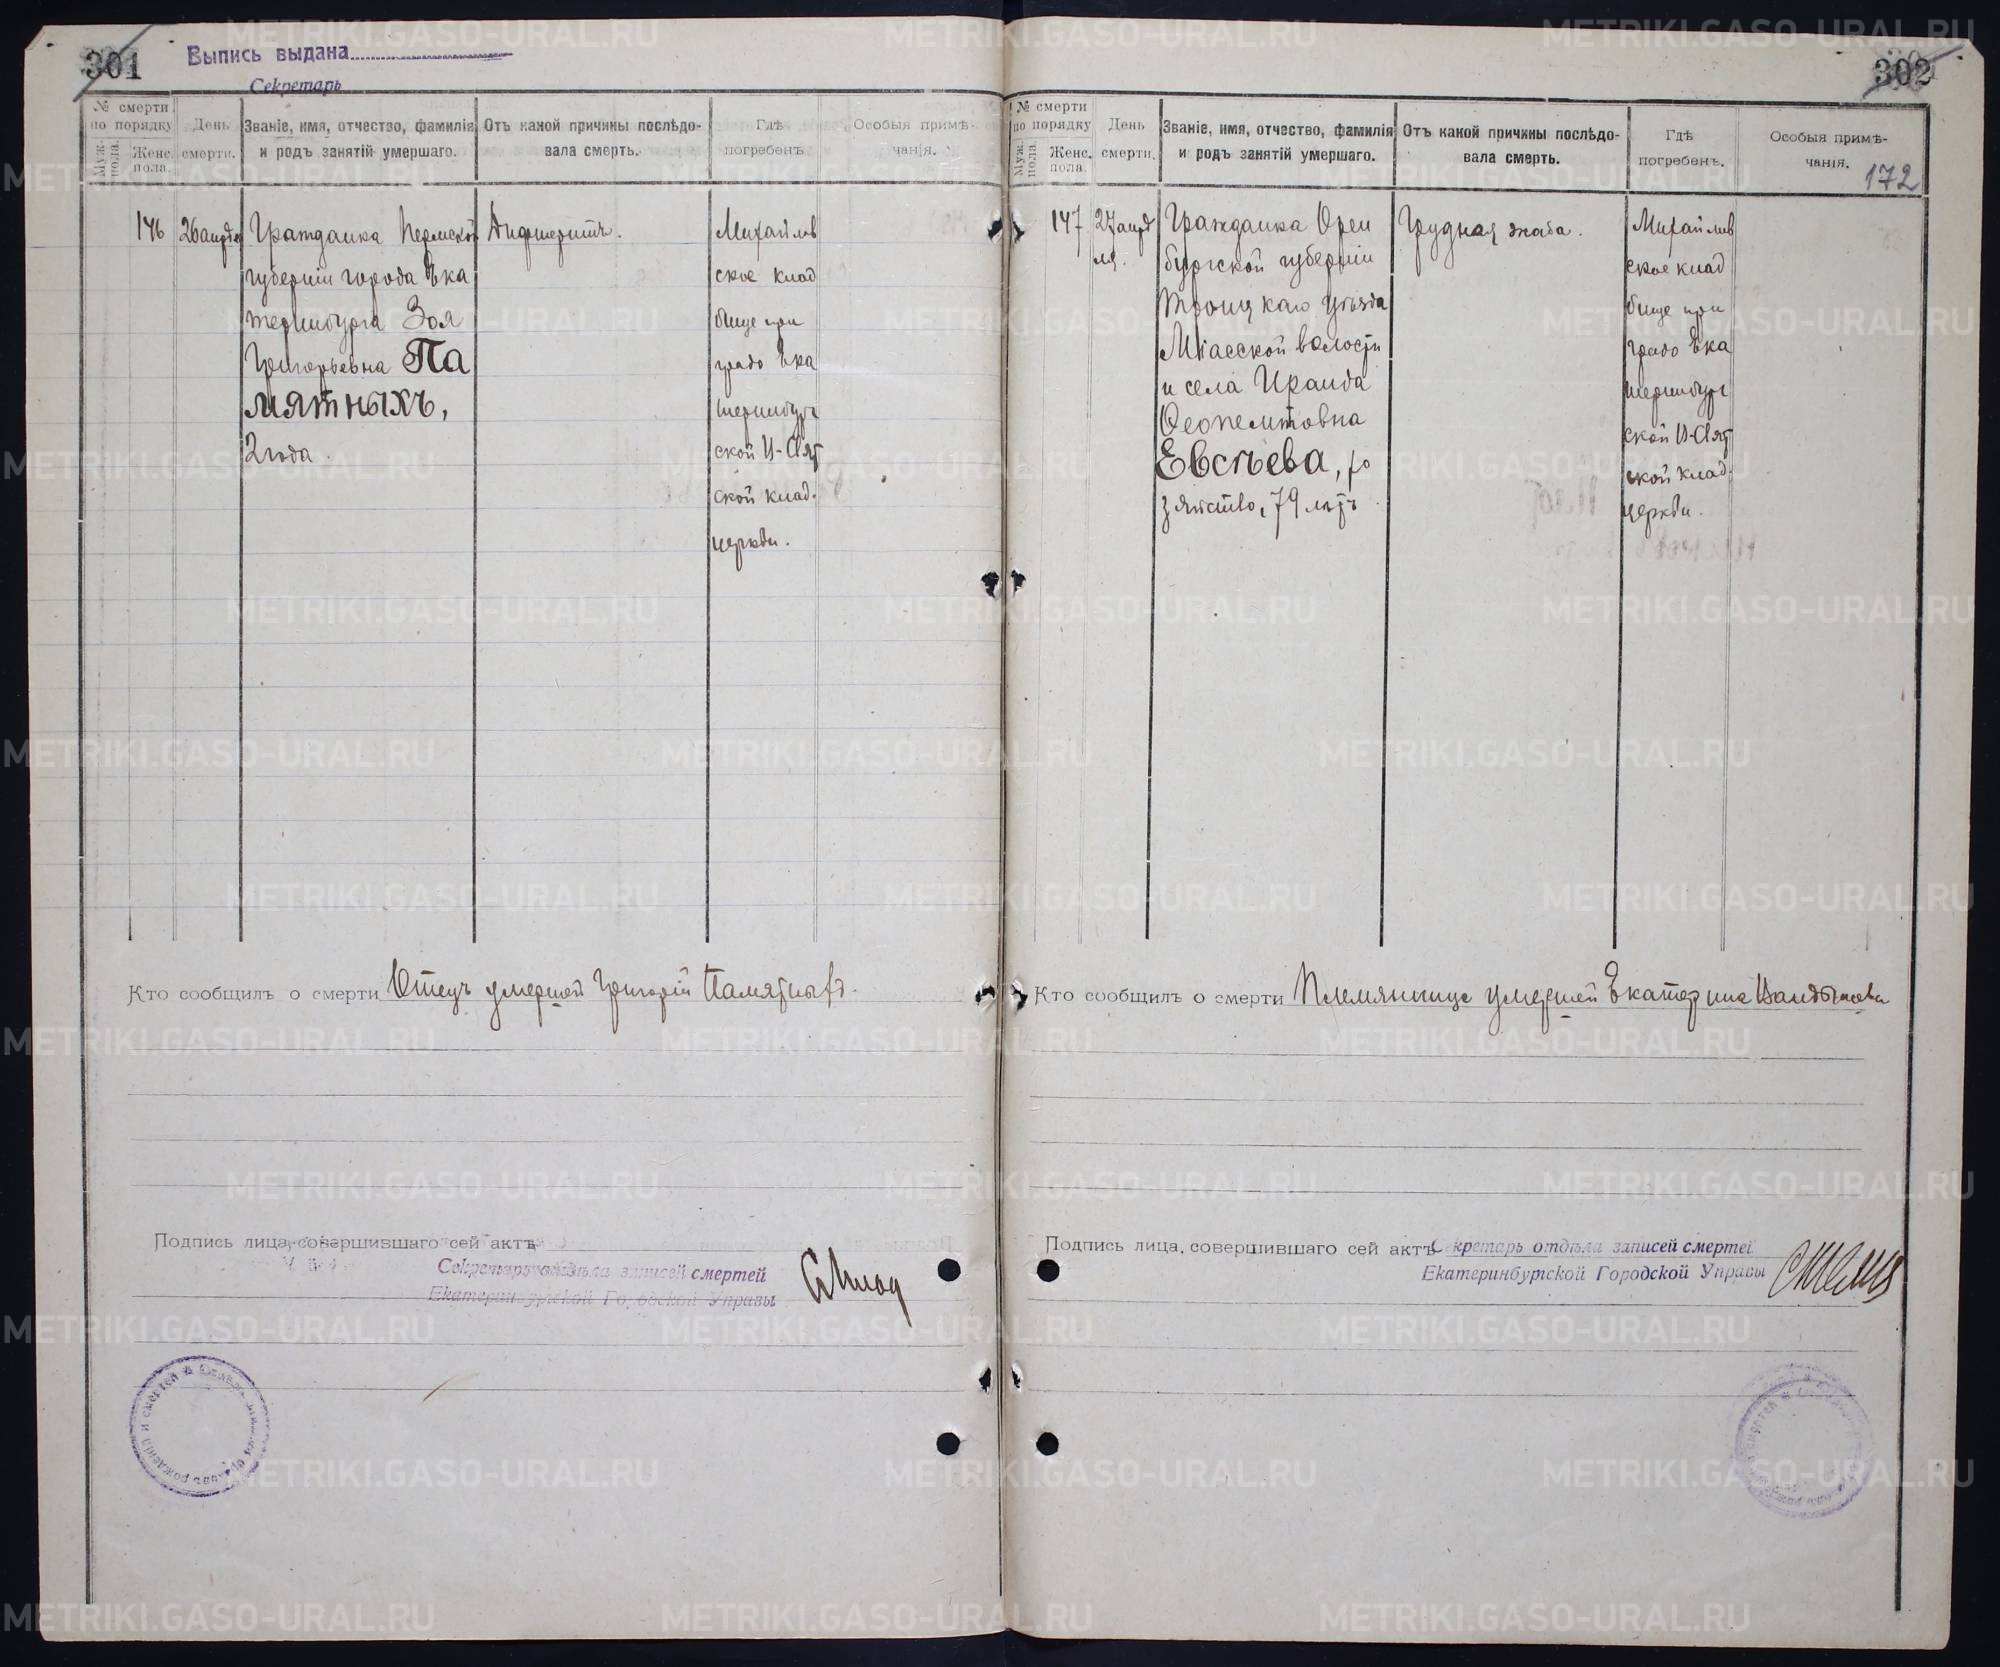 301
Выпись выдана
Секретарь
№ смерти по порядку
Муж. пола.
Женс. пола.
День смерти.
Званіе, имя, отчество, фамилія и родъ занятій умершаго.
Отъ какой причины послѣдовала смерть.
Гдѣ погребенъ.
Особыя примѣчанія.
146
26 апрѣля
Гражданка Пермской
губерніи города Ека
теринбурга Зоя
Григорьевна Па
мятныхъ,
2 года.
Дифтеритъ.
Михайлов
ское клад
бище при
градо Ека
теринбург
ской
ской клад.
церкви.
Кто сообщилъ о смерти Отецъ умершей Григорій Памятныхъ.
Подпись лица, совершившаго сей актъ
Секретарь отдѣла записей смертей
Екатеринбургской Городской Управы
302
172
№ смерти по порядку
Муж. пола.
Женс. пола.
День смерти.
Званіе, имя, отчество, фамилія и родъ занятій умершаго.
Отъ какой причины послѣдовала смерть.
Гдѣ погребенъ.
Особыя примѣчанія.
147
27 апрѣ
ля.
Гражданка Орен
бургской губерніи
Троицкаго уѣзда
Міасской волости
и села Ираида
Феопемптовна
Евсѣева, хо
зяйство, 79 лѣтъ.
Грудная жаба.
Михайлов
ское клад
бище при
градо Ека
теринбург
ской
ской клад.
церкви.
Кто сообщилъ о смерти Племянница умершей Екатерина
Подпись лица, совершившаго сей актъ Секретарь отдѣла записей смертей
Екатеринбургской Городской Управы
METRIKI.GASO-URAL.RU